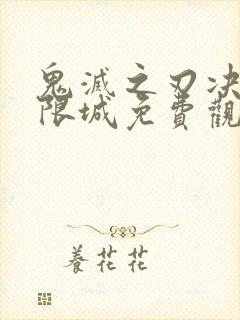 鬼滅之刃决
限城免費觀
養花花